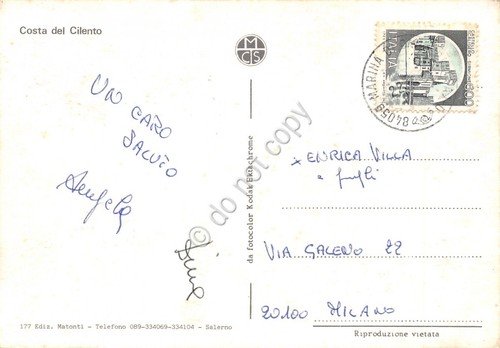 Costa del Cilento
MCS
UN CARO
SALUTO
Angela
ENRICA VILLA
e figli
VIA GALENO 22
20100 MILANO
da fotocolor Kodak Ektachrome
177 Ediz. Matonti - Telefono 089-334069-334104 - Salerno
Riproduzione vietata
MARINA
84059
ITALIA
do not copy